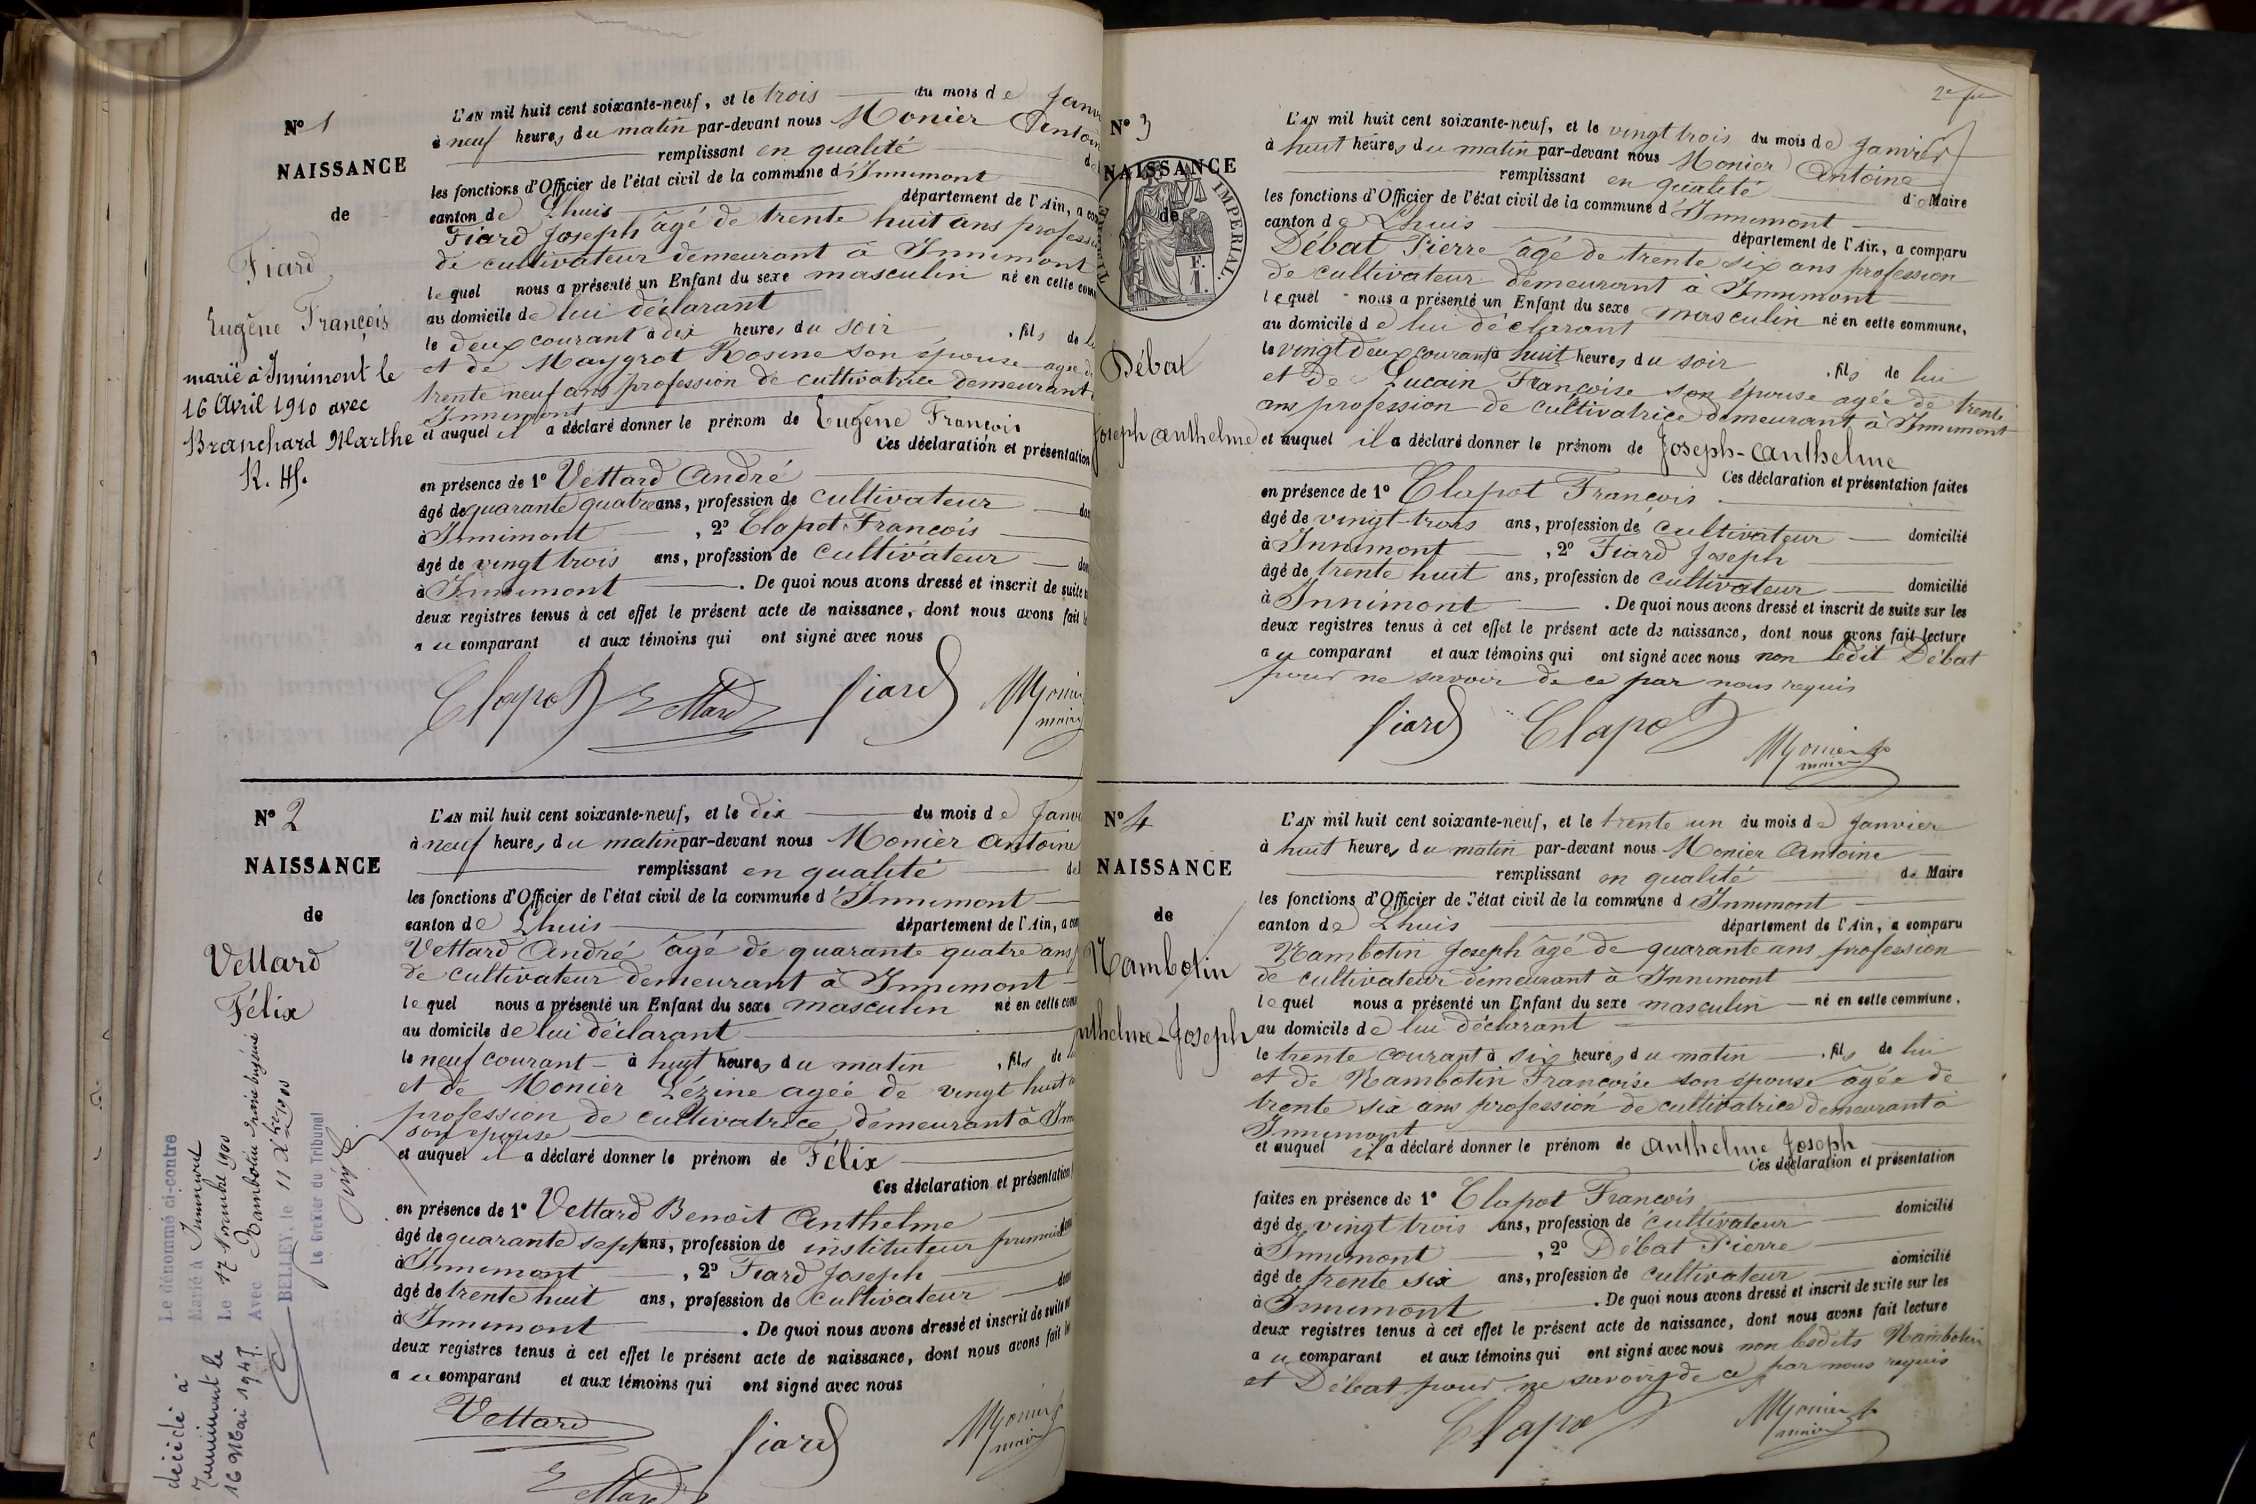 N° 1
NAISSANCE
de
Fiard
Eugène François
marié à Innimont le
16 Avril 1910 avec
Branchard Marthe
L'AN mil huit cent soixante-neuf, et le trois du mois de Janv
à neuf heures du matin par-devant nous Monier Antoin
remplissant en qualité de
les fonctions d'Officier de l'état civil de la commune d'Innimont
canton de Lhuis département de l'Ain, a com
Fiard Joseph âgé de trente huit ans profess
de cultivateur demeurant à Innimont
lequel nous a présenté un Enfant du sexe masculin né en cette com
au domicile de lui déclarant
le deux courant à dix heures du soir, fils de l
et de Maygrot Rosine son épouse agée d
trente neuf ans profession de cultivatrice demeurant
Innimont
et auquel il a déclaré donner le prénom de Eugène François
Ces déclaration et présentation
en présence de 1° Vettard André
âgé de quarante quatre ans, profession de cultivateur dom
à Innimont, 2° Clapot François
âgé de vingt trois ans, profession de cultivateur dom
à Innimont. De quoi nous avons dressé et inscrit de suite s
deux registres tenus à cet effet le présent acte de naissance, dont nous avons fait l
au comparant et aux témoins qui ont signé avec nous
Clapot Vettard fiard Monier
maire
N° 2
NAISSANCE
de
Vettard
Félix
Le dénommé ci-contre
Marié à Innimont
Le 17 Novembre 1900
Avec Nambotin
BELLEY, le 11 Xbre 1900
Le Greffier du Tribunal
décédé à
Innimont le
16 Mai 1947.
L'AN mil huit cent soixante-neuf, et le dix du mois de Janvi
à neuf heures du matin par-devant nous Monier Antoine
remplissant en qualité de
les fonctions d'Officier de l'état civil de la commune d'Innimont
canton de Lhuis département de l'Ain, a com
Vettard André âgé de quarante quatre ans
de cultivateur demeurant à Innimont
lequel nous a présenté un Enfant du sexe masculin né en cette com
au domicile de lui déclarant
le neuf courant à huit heures du matin, fils de l
et de Monier Lézine agée de vingt huit
profession de cultivatrice, demeurant à Inn
son épouse
et auquel il a déclaré donner le prénom de Félix
Ces déclaration et présentation
en présence de 1° Vettard Benoît Anthelme
âgé de quarante sept ans, profession de instituteur
à Innimont, 2° Fiard Joseph
âgé de trente huit ans, profession de cultivateur dom
à Innimont. De quoi nous avons dressé et inscrit de suite su
deux registres tenus à cet effet le présent acte de naissance, dont nous avons fait le
au comparant et aux témoins qui ont signé avec nous
Vettard fiard Monier
maire
Vettard
N° 3
NAISSANCE
de
IMPERIAL.
Débat
Joseph Anthelme
L'AN mil huit cent soixante-neuf, et le vingt trois du mois de Janvier
à huit heures du matin par-devant nous Monier Antoine
remplissant en qualité de Maire
les fonctions d'Officier de l'état civil de la commune d'Innimont
canton de Lhuis département de l'Ain, a comparu
Débat Pierre âgé de trente six ans profession
de cultivateur demeurant à Innimont
lequel nous a présenté un Enfant du sexe masculin né en cette commune,
au domicile de lui déclarant
le vingt deux courant à huit heures du soir, fils de lui
et de Lucain Françoise son épouse agée de trente
ans profession de cultivatrice demeurant à Innimont
et auquel il a déclaré donner le prénom de Joseph-Anthelme
Ces déclaration et présentation faites
en présence de 1° Clapot François
âgé de vingt-trois ans, profession de cultivateur domicilié
à Innimont, 2° Fiard Joseph
âgé de trente huit ans, profession de cultivateur domicilié
à Innimont. De quoi nous avons dressé et inscrit de suite sur les
deux registres tenus à cet effet le présent acte de naissance, dont nous avons fait lecture
au comparant et aux témoins qui ont signé avec nous non ledit Débat
pour ne savoir de ce par nous requis
fiard Clapot Monier
maire
N° 4
NAISSANCE
de
Nambotin
nthelme-Joseph
L'AN mil huit cent soixante-neuf, et le trente un du mois de Janvier
à huit heures du matin par-devant nous Monier Antoine
remplissant en qualité de Maire
les fonctions d'Officier de l'état civil de la commune d'Innimont
canton de Lhuis département de l'Ain, a comparu
Nambotin Joseph âgé de quarante ans profession
de cultivateur demeurant à Innimont
lequel nous a présenté un Enfant du sexe masculin né en cette commune,
au domicile de lui déclarant
le trente courant à six heures du matin, fils de lui
et de Nambotin Françoise son épouse âgée de
trente six ans profession de cultivatrice demeurant à
Innimont
et auquel il a déclaré donner le prénom de Anthelme Joseph
Ces déclaration et présentation
faites en présence de 1° Clapot François
âgé de vingt trois ans, profession de cultivateur domicilié
à Innimont, 2° Débat Pierre
âgé de trente six ans, profession de cultivateur domicilié
à Innimont. De quoi nous avons dressé et inscrit de suite sur les
deux registres tenus à cet effet le présent acte de naissance, dont nous avons fait lecture
au comparant et aux témoins qui ont signé avec nous non lesdits Nambotin
et Débat pour ne savoir de ce par nous requis
Clapot Monier
maire